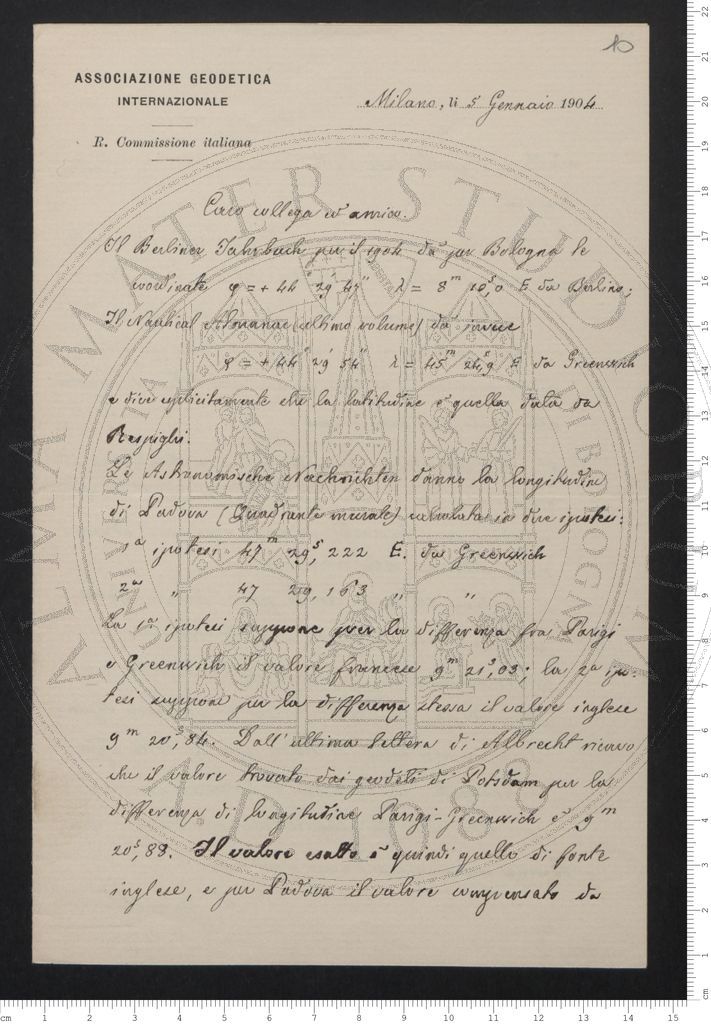 10
ASSOCIAZIONE GEODETICA
INTERNAZIONALE
R. Commissione italiana
Milano, li 5 Gennaio 1904
Caro collega ed amico.
Il Berliner Jahrbuch per il 1904 dà per Bologna le
coordinate φ = + 44° 29' 47" λ = 8m 10s,0 E da Berlino;
Il Nautical Almanac (ultimo volume) dà invece
φ = + 44° 29' 54" λ = 45m 24s,9 E da Greenwich
e dice esplicitamente che la latitudine è quella data da
Respighi.
Le Astronomische Nachrichten danno la longitudine
di Padova (Quadrante murale) calcolata in due ipotesi:
1a ipotesi 47m 29s,222 E. da Greenwich
2a " 47 29,163 " "
La 1a ipotesi suppone per la differenza fra Parigi
e Greenwich il valore francese 9m 21s,03; la 2a ipo-
tesi suppone per la differenza stessa il valore inglese
9m 20s,84. Dall'ultima lettera di Albrecht ricavo
che il valore trovato dai geodeti di Potsdam per la
differenza di longitudine Parigi-Greenwich è 9m
20s,88. Il valore esatto è quindi quello di fonte
inglese, e per Padova il valore compensato da
ALMA MATER STUDIORUM
A.D. 1088
cm 1 2 3 4 5 6 7 8 9 10 11 12 13 14 15
22
21
20
19
18
17
16
15
14
13
12
11
10
9
8
7
6
5
4
3
2
1
cm